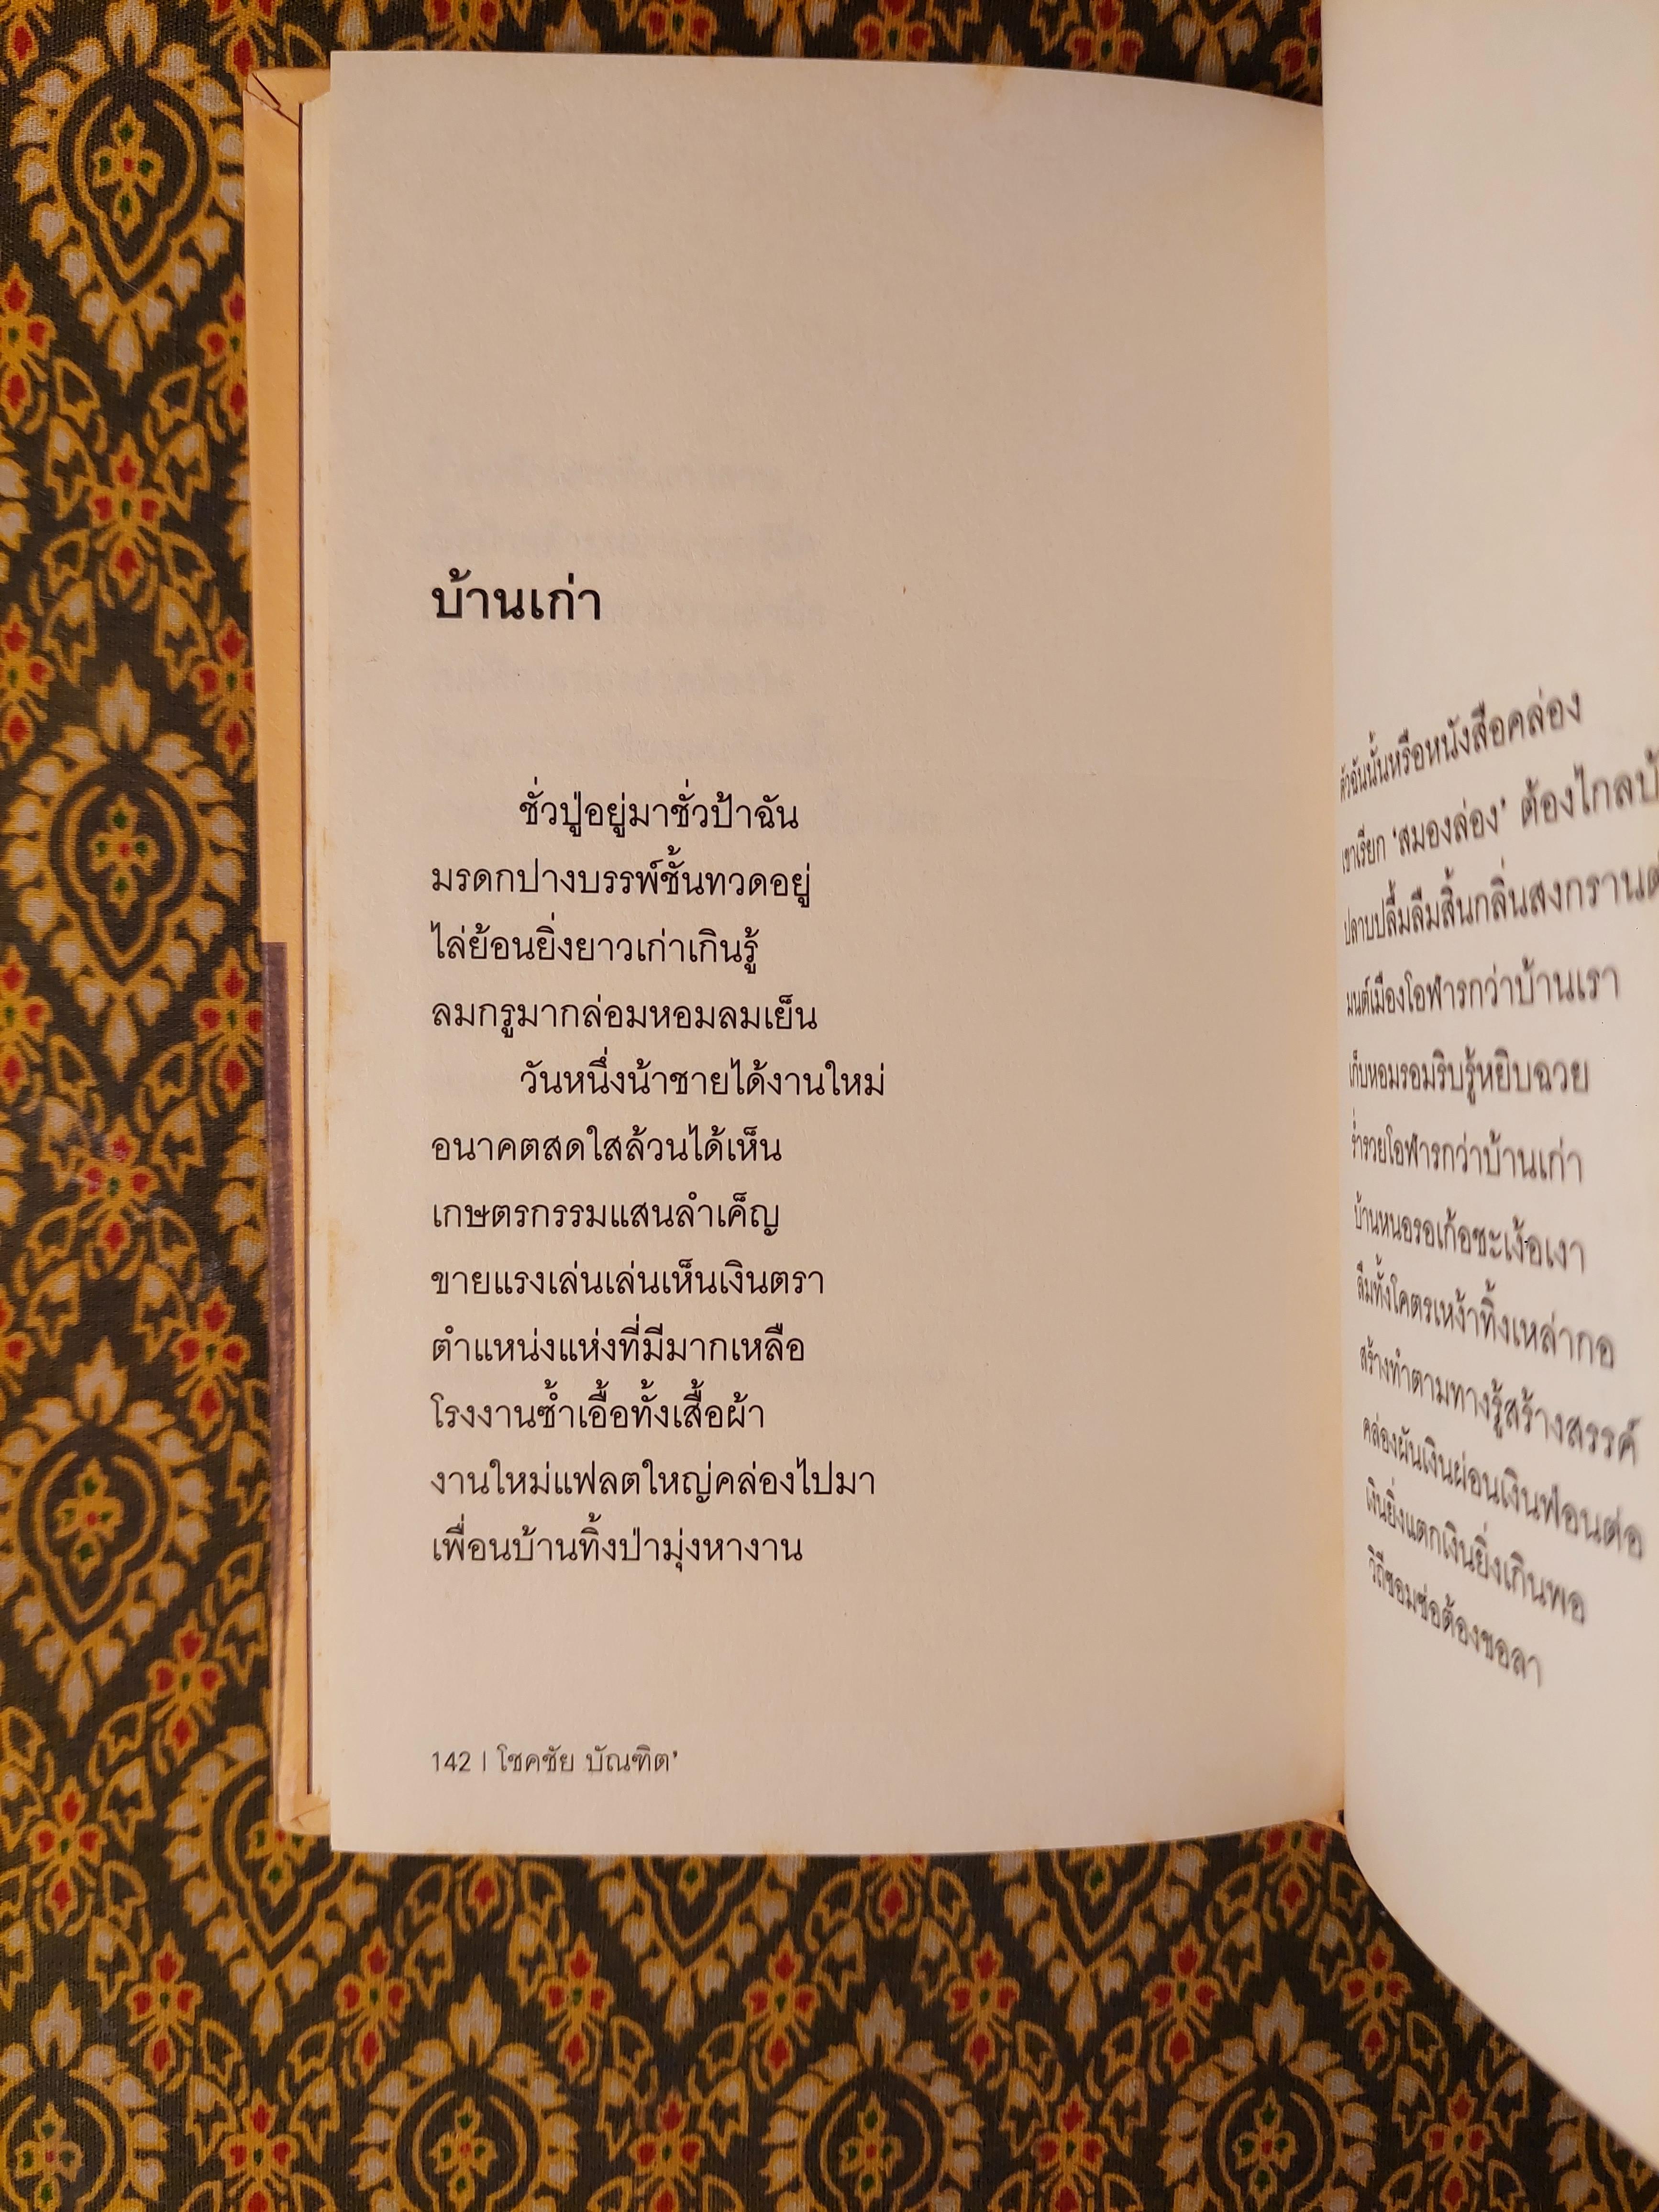 บ้านเก่า
ชั่วปู่อยู่มาชั่วป้าฉัน
มรดกปางบรรพ์ชั้นทวดอยู่
ไล่ย้อนยิ่งยาวเก่าเกินรู้
ลมกรูมากล่อมหอมลมเย็น
วันหนึ่งน้าชายได้งานใหม่
อนาคตสดใสล้วนได้เห็น
เกษตรกรรมแสนลำเค็ญ
ขายแรงเล่นเล่นเห็นเงินตรา
ตำแหน่งแห่งที่มีมากเหลือ
โรงงานซ้ำเอื้อทั้งเสื้อผ้า
งานใหม่แฟลตใหญ่คล่องไปมา
เพื่อนบ้านทิ้งป่ามุ่งหางาน
142 | โชคชัย บัณฑิต'
ตัวฉันนั้นหรือหนังสือคล่อง
เขาเรียก 'สมองล่อง' ต้องไกล
ปลาบปลื้มลืมสิ้นกลิ่น
มนต์เมืองโอฬารกว่าบ้านเรา
เก็บหอมรอมริบรู้หยิบฉวย
ร่ำรวยโอฬารกว่าบ้านเก่า
บ้านหนอรอเก้อชะเง้อเงา
ลืมทั้งโคตรเหง้าทิ้งเหล่ากอ
สร้างทำตามทางรู้สร้างสรรค์
คล่องผันเงินผ่อนเงินฟอนต่อ
เงินยิ่งแตกเงินยิ่งเกินพอ
วิถีซอมซ่อต้องขอลา